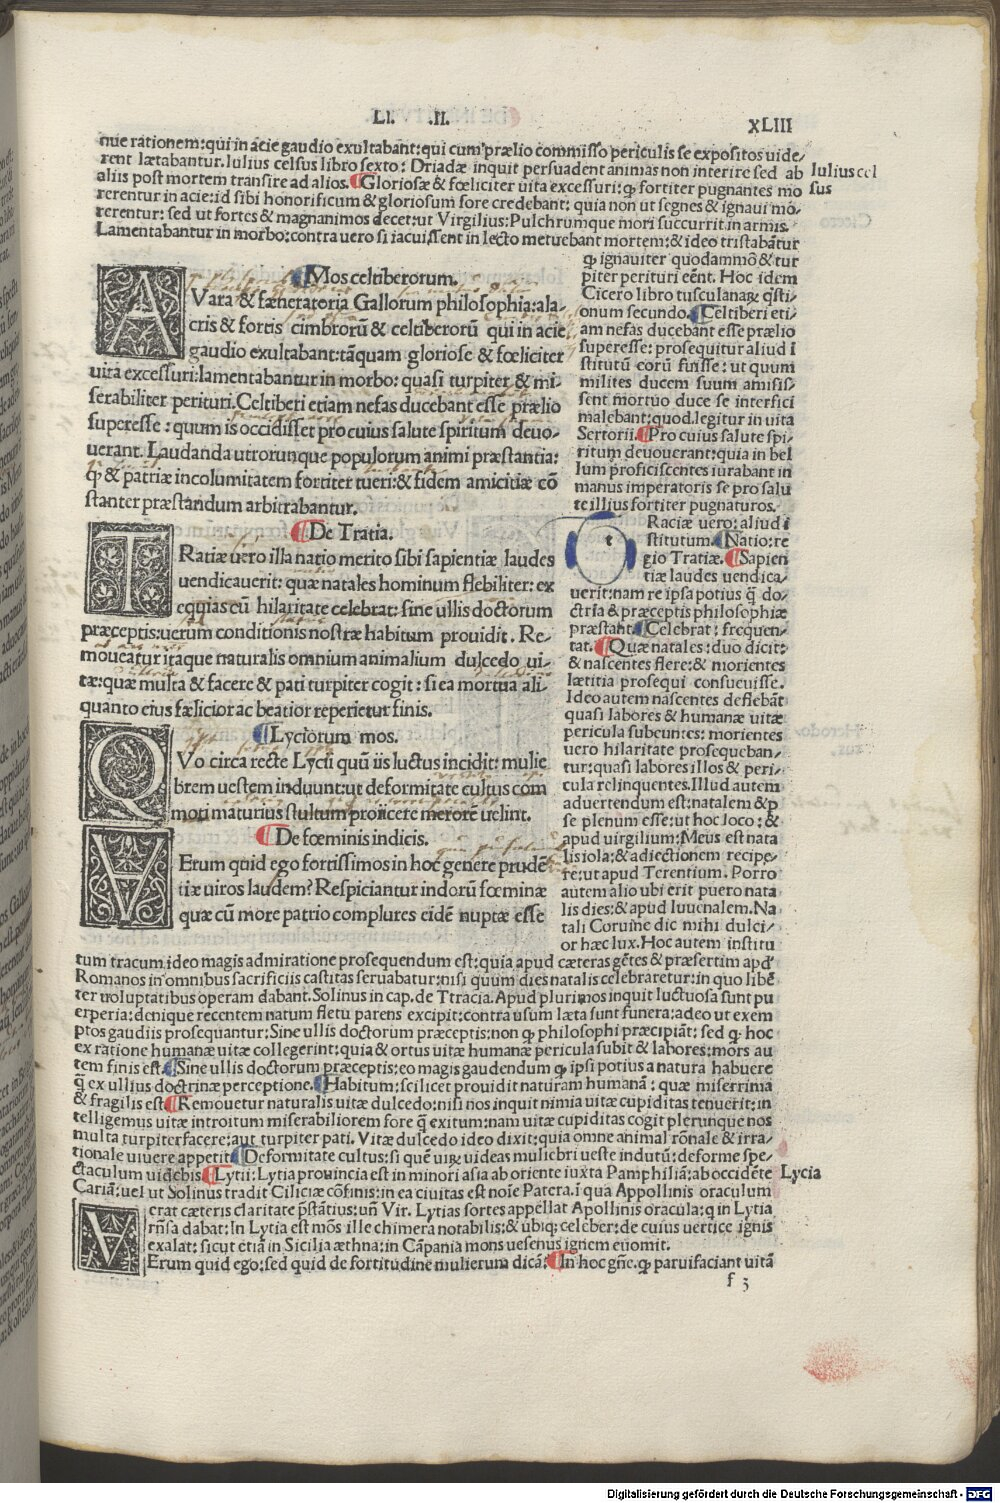 LI. .II.
XLIII
nue rationem:qui in acie gaudio exultabant:qui cum prælio commisso periculis se expositos uide/
rent lætabantur.Iulius celsus libro sexto: Driadæ inquit persuadent animas non interire sed ab
aliis post mortem transire ad alios.¶Gloriosæ & fœliciter uita excessuri:ꝙ fortiter pugnantes mo
rerentur in acie:id sibi honorificum & gloriosum fore credebant: quia non ut segnes & ignaui mo/
rerentur: sed ut fortes & magnanimos decet:ut Virgilius:Pulchrumque mori succurrit in armis.
Lamentabantur in morbo:contra uero si iacuissent in lecto metuebant mortem:& ideo tristabātur
Iulius cel
sus
¶Mos celtiberorum.
AVara & fæneratoria Gallorum philosophia:ala/
cris & fortis cimbrorū & celtiberorū qui in acie
gaudio exultabant:tāquam gloriose & fœliciter
uita excessuri:lamentabantur in morbo: quasi turpiter & mi/
serabiliter perituri.Celtiberi etiam nefas ducebant esse prælio
superesse : quum is occidisset pro cuius salute spiritum deuo/
uerant. Laudanda utrorunque populorum animi præstantia:
ꝙ & patriæ incolumitatem fortiter tueri:& fidem amicitiæ cō
stanter præstandum arbitrabantur.
¶De Tratia.
TRatiæ uero illa natio merito sibi sapientiæ laudes
uendicauerit: quæ natales hominum flebiliter: ex
equias cū hilaritate celebrat: sine ullis doctorum
præceptis:uerum conditionis nostræ habitum prouidit. Re/
moueatur itaque naturalis omnium animalium dulcedo ui/
tæ:quæ multa & facere & pati turpiter cogit : si ea mortua ali/
quanto eius fælicior ac beatior reperietur finis.
¶Lyciorum mos.
QVo circa recte Lycii quū iis luctus incidit: mulie
brem uestem induunt:ut deformitate cultus com
moti maturius stultum proiicere merore uelint.
¶De fœminis indicis.
VErum quid ego fortissimos in hoc genere prudē
tiæ uiros laudem? Respiciantur indorū fœminæ
quæ cū more patrio complures eidē nuptæ esse
ꝙ ignauiter quodammō & tur
piter perituri eēnt. Hoc idem
Cicero libro tusculanaꝝ q̄sti/
onum secundo.¶Celtiberi eti/
am nefas ducebant esse prælio
superesse: prosequitur aliud ī
stitutū corū fuisse: ut quum
milites ducem suum amisis/
sent mortuo duce se interfici
malebant:quod.legitur in uita
Sertorii.¶Pro cuius salute spi/
ritum deuouerant:quia in bel
lum proficiscentes iurabant in
manus imperatoris se pro salu
te illius fortiter pugnaturos.
t Raciæ uero: aliud ī
stitutum.¶Natio:re
gio Tratiæ.¶Sapien
tiæ laudes uendica/
uerit:nam re ipsa potius q̄ do/
ctria & præceptis philosophiæ
præstant.¶Celebrat: frequen/
tat.¶Quæ natales: duo dicit:
& nascentes flere: & morientes
lætitia prosequi consueuisse.
Ideo autem nascentes deflebāt
quasi labores & humanæ uitæ
pericula subeuntes: morientes
uero hilaritate prosequeban/
tur:quasi labores illos & peri/
cula relinquentes.Illud autem
aduertendum est:natalem & p
se plenum esse:ut hoc loco: &
apud uirgilium:Meus est nata
lis iola:& adiectionem recipe/
re:ut apud Terentium. Porro
autem alio ubi erit puero nata
lis dies:& apud Iuuenalem.Na
tali Coruine dic mihi dulci/
or hæc lux.Hoc autem institu
tum tracum ideo magis admiratione prosequendum est:quia apud cæteras gētes & præsertim apd'
Romanos in omnibus sacrificiis castitas seruabatur:nisi quum dies natalis celebraretur:in quo libē
ter uoluptatibus operam dabant.Solinus in cap.de Ttracia.Apud plurimos inquit luctuosa sunt pu
erperia:denique recentem natum fletu parens excipit:contra usum læta sunt funera:adeo ut exem
ptos gaudiis prosequantur:Sine ullis doctorum præceptis:non ꝙ philosophi præcipiāt: sed ꝙ hoc
ex ratione humanæ uitæ collegerint:quia & ortus uitæ humanæ pericula subit & labores:mors au
tem finis est.¶Sine ullis doctorum præceptis:eo magis gaudendum ꝙ ipsi potius a natura habuere
q̄ ex ullius doctrinæ perceptione.¶Habitum:scilicet prouidit naturam humanā: quæ miserrima
& fragilis est¶Remouetur naturalis uitæ dulcedo:nisi nos inquit nimia uitæ cupiditas tenuerit:in
telligemus uitæ introitum miserabiliorem fore q̄ exitum:nam uitæ cupiditas cogit plerunque nos
multa turpiter facere:aut turpiter pati. Vitæ dulcedo ideo dixit:quia omne animal rōnale & irra/
tionale uiuere appetit¶Deformitate cultus:si quē uiꝝ uideas muliebri ueste indutū:deforme spe/
ctaculum uidebis¶Lytii:Lytia prouincia est in minori asia ab oriente iuxta Pamphiliā:ab occidēte
Cariā:uel ut Solinus tradit Ciliciæ cōfinis:in ea ciuitas est noīe Patera.ī qua Appollinis oraculum
erat cæteris claritate p̄stātius:uñ Vir. Lytias sortes appellat Apollinis oracula:q in Lytia
rñsa dabat:In Lytia est mōs ille chimera notabilis:& ubiq; celeber:de cuius uertice ignis
exalat:sicut etiā in Sicilia æthna:in Cāpania mons uesenus ignem euomit.
VErum quid ego:sed quid de fortitudine mulierum dicā:¶In hoc gñe.ꝙ parui faciant uitā
Lycia
f 3
Digitalisierung gefördert durch die Deutsche Forschungsgemeinschaft - DFG